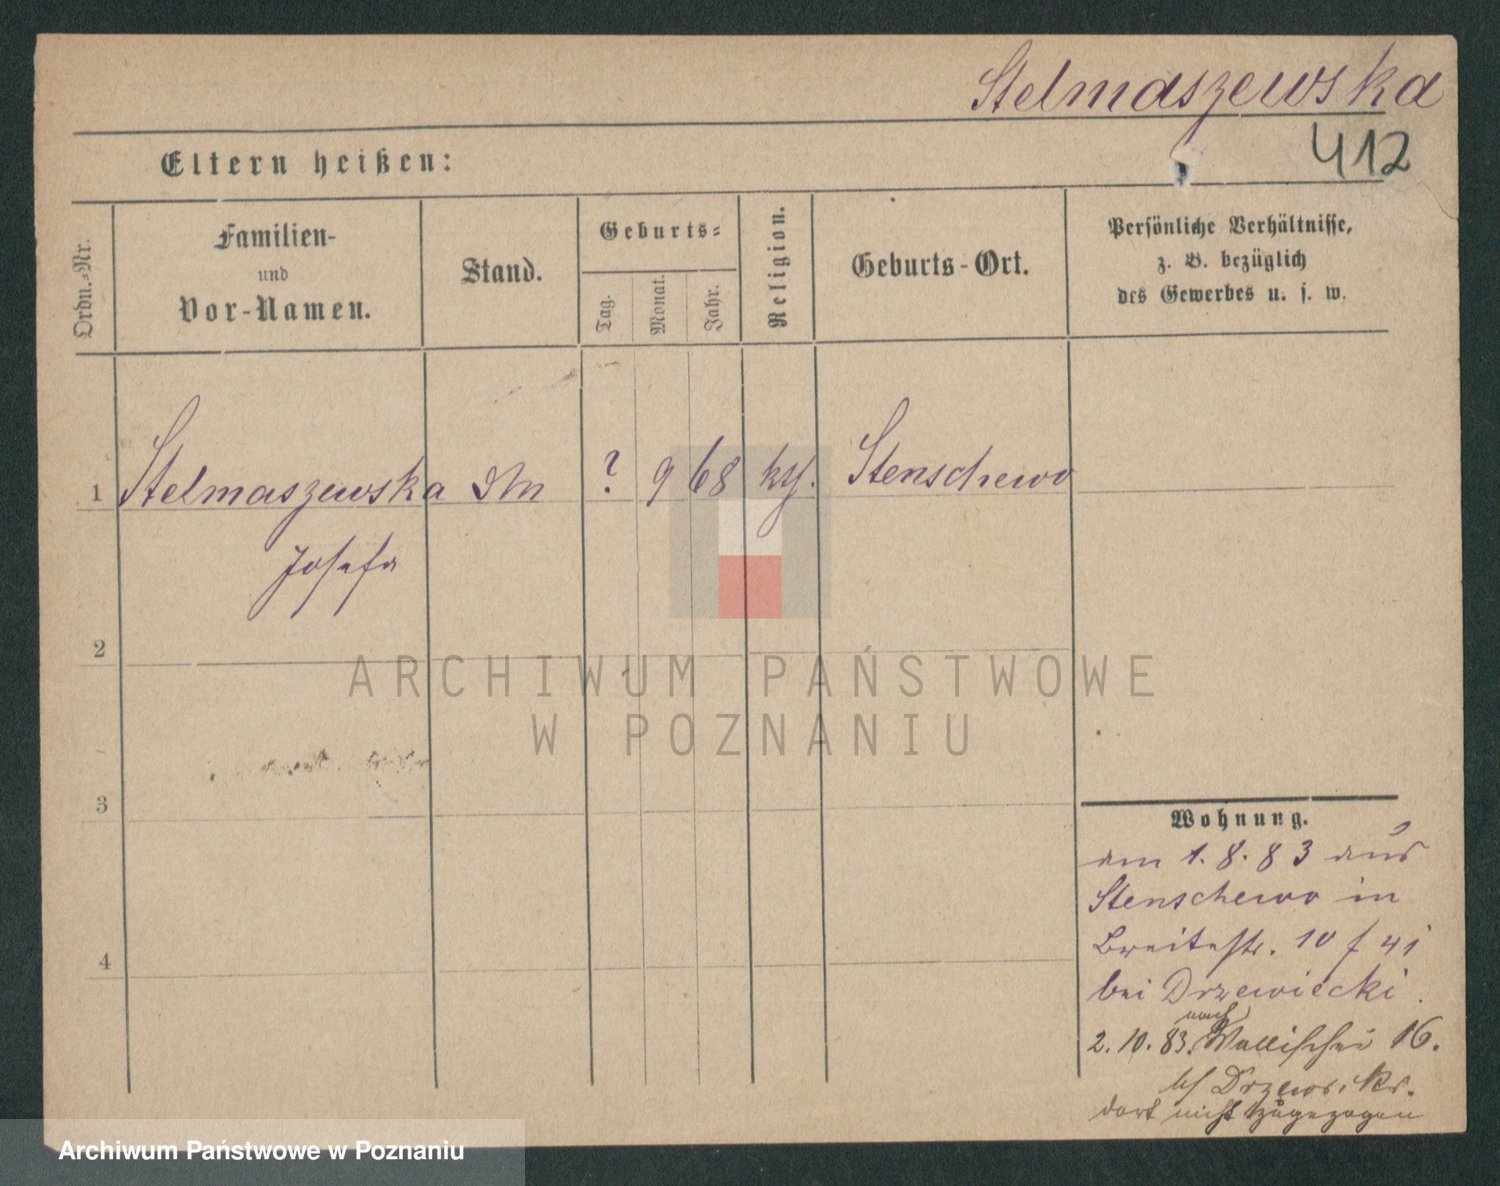 Stelmaszewska
412
Eltern heißen:
Ordn.-Nr.
Familien-
und
Vor-Namen.
Stand.
Geburts-
Tag.
Monat.
Jahr.
Religion.
Geburts-Ort.
Persönliche Verhältnisse,
z. B. bezüglich
des Gewerbes u. s. w.
1 Stelmaszewska ? 9 68 Stenschewo
Josefa
2
3
4
ARCHIWUM PAŃSTWOWE
W POZNANIU
Wohnung.
am 1. 8. 83 aus
Stenschewo in
Breitestr. 10
bei Drzewiecki
nach
2. 10. 83. Wallischei 16.
dort nicht zugezogen
Archiwum Państwowe w Poznaniu